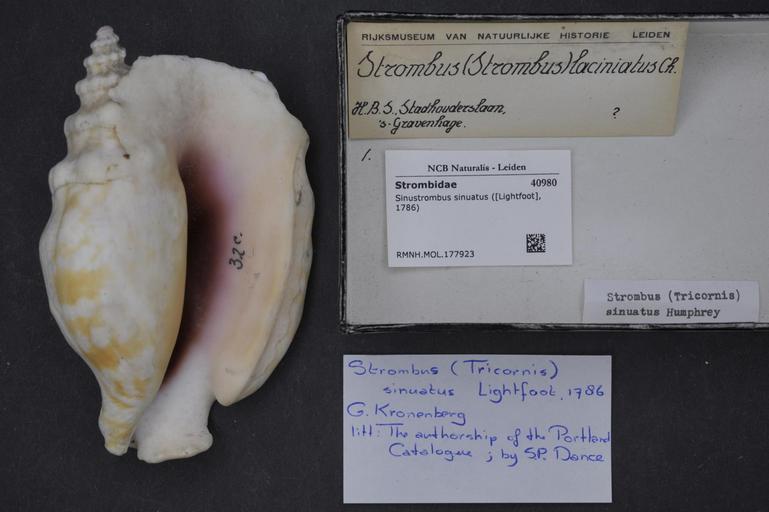 RIJKSMUSEUM VAN NATUURLIJKE HISTORIE LEIDEN
Strombus (Strombus) laciniatus Ch.
H.B.S., Stadhouderslaan,
's-Gravenhage. ?
1.
NCB Naturalis - Leiden
Strombidae 40980
Sinustrombus sinuatus ([Lightfoot],
1786)
RMNH.MOL.177923
32c.
Strombus (Tricornis)
sinuatus Humphrey
Strombus (Tricornis)
sinuatus Lightfoot, 1786
G. Kronenberg
litt: The authorship of the Portland
Catalogue ; by S.P. Dance